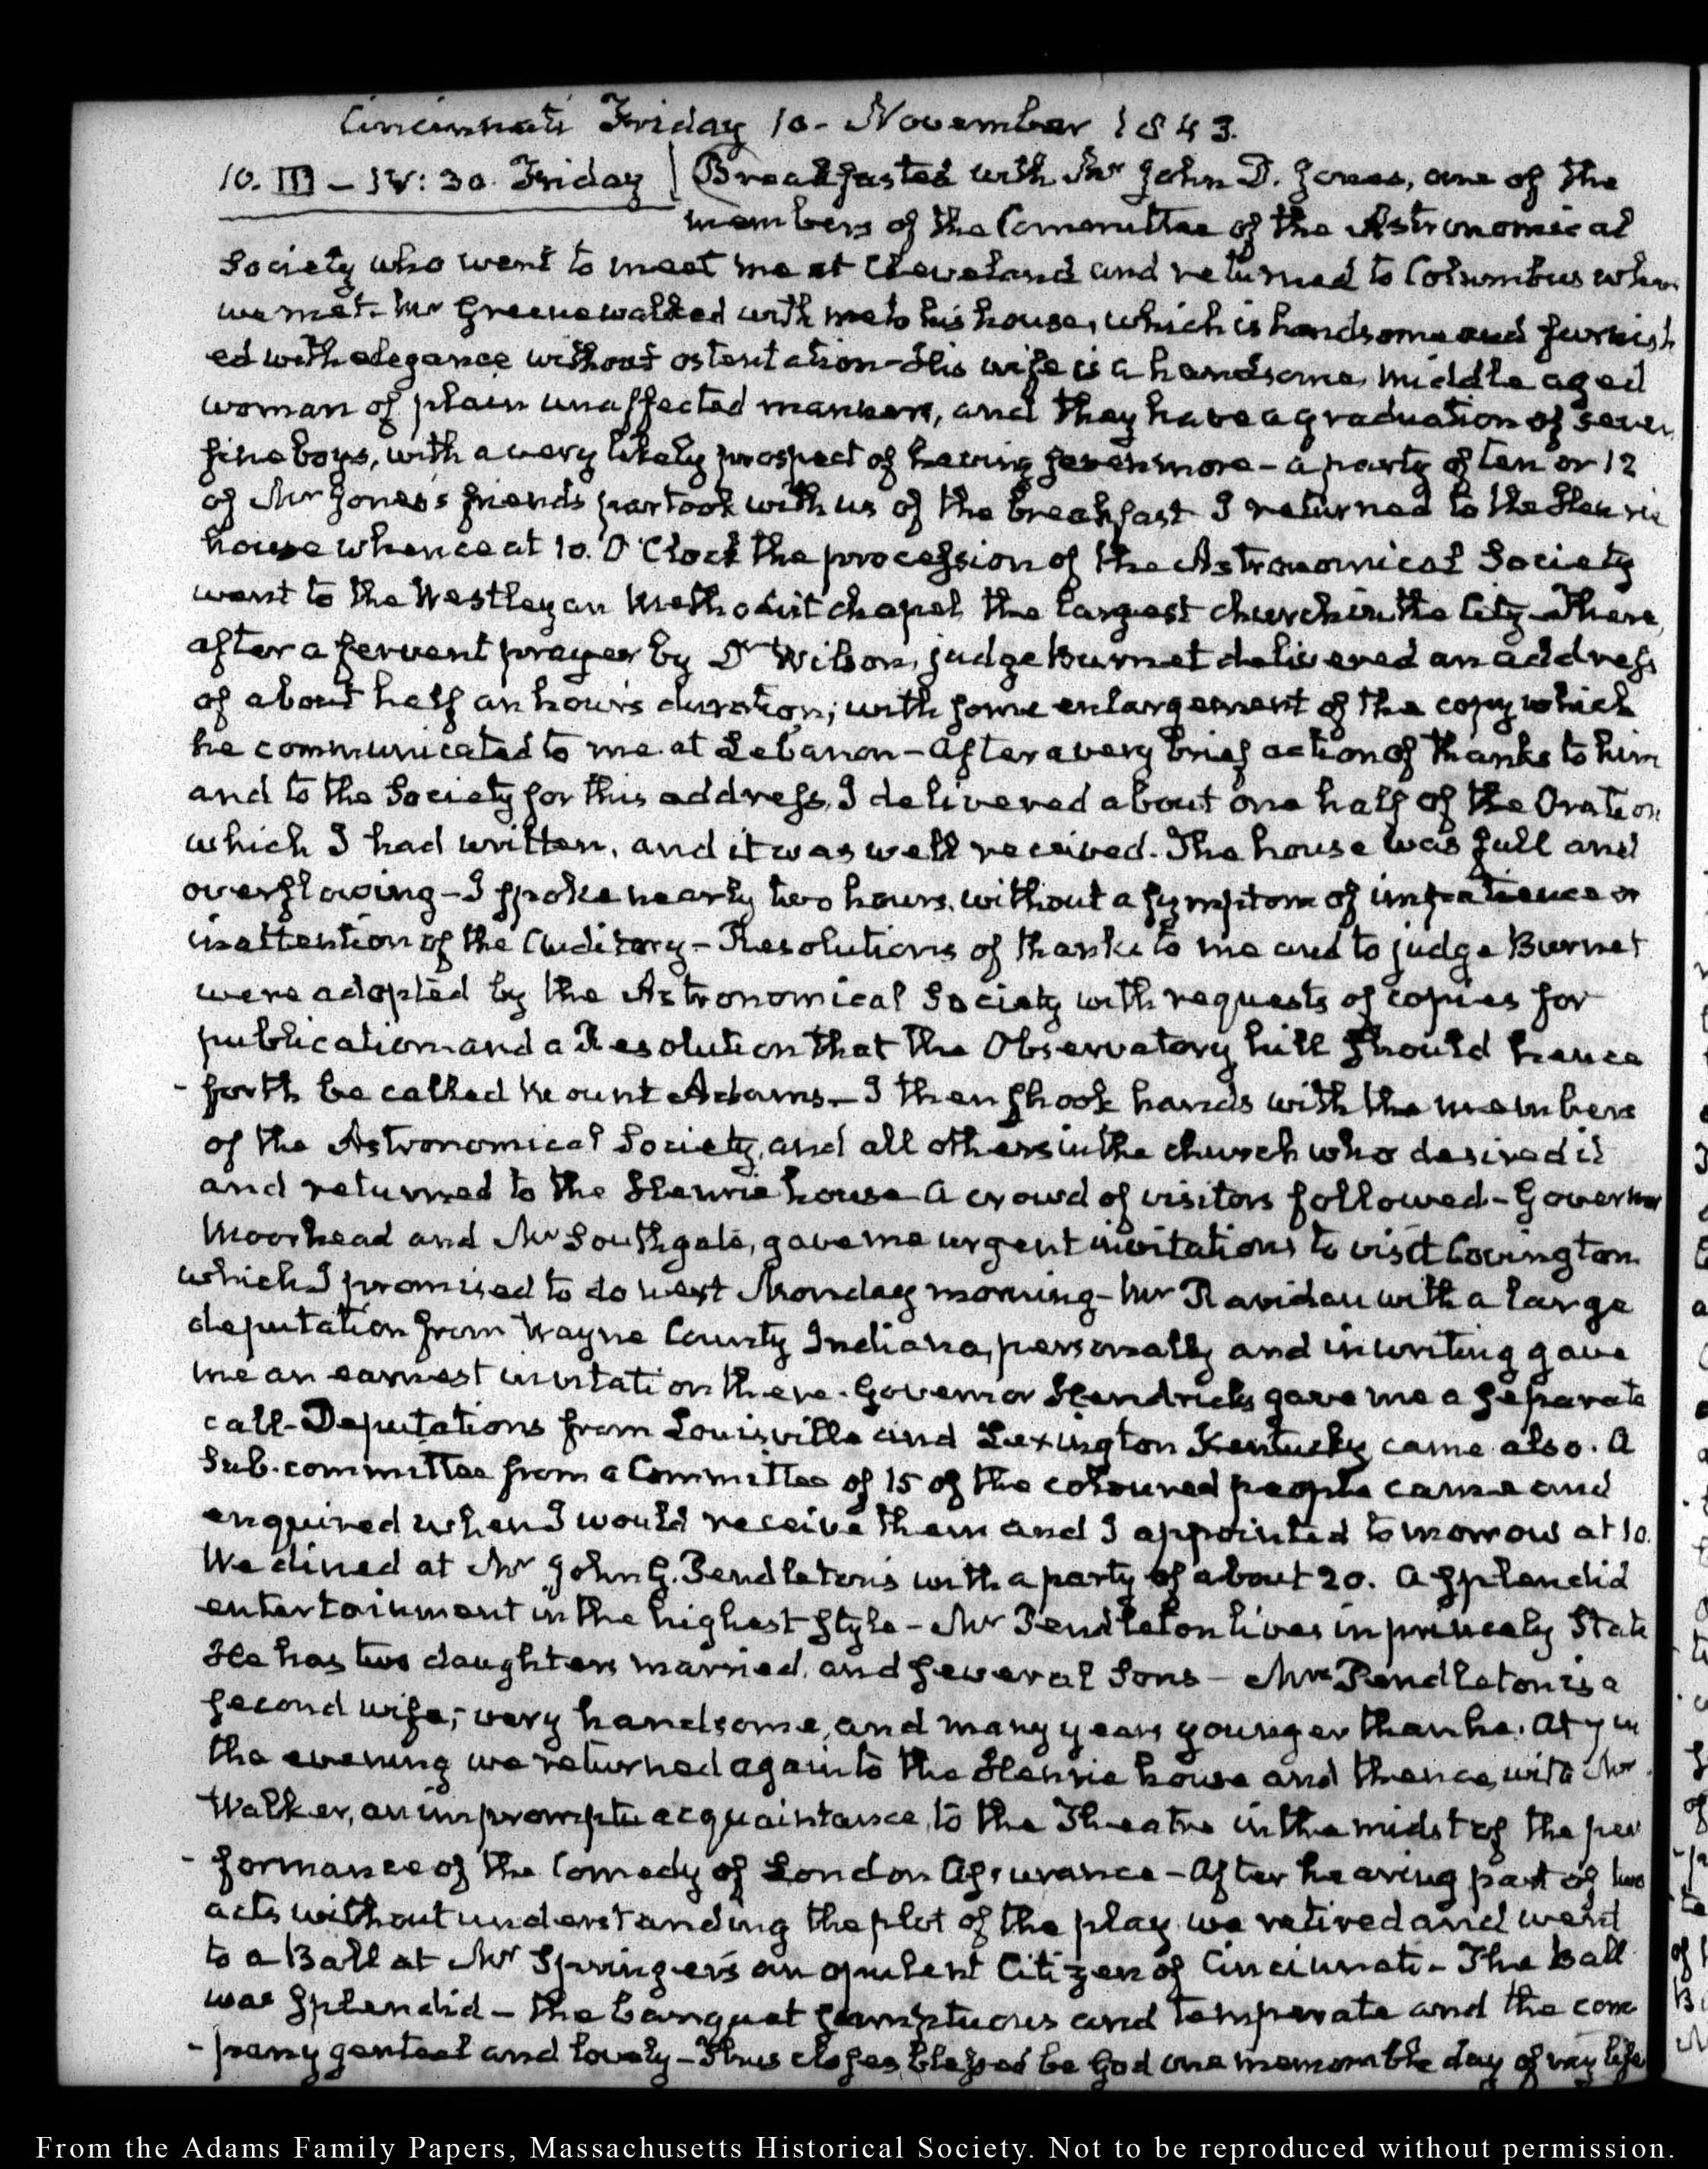 Cincinnati Friday 10. November 1843.
10. III – IV: 30. Friday Breakfasted with Mr John D. Jones, one of the
members of the Committee of the Astronomical
Society who went to meet me at Cleveland and returned to Columbus where
we met. Mr Greene walked with me to his house, which is handsome and furnish
ed with elegance without ostentation – His wife is a handsome, middle aged
woman of plain unaffected manners, and they have a graduation of seven
fine boys, with a very likely prospect of having seven more – a party of ten or 12
of Mr Jones's friends partook with us of the breakfast I returned to the Henrie
house whence at 10. O'Clock the procession of the Astronomical Society
went to the Westleyan Methodist chapel the largest church in the City – There,
after a fervent prayer by Dr Wilson, judge Burnet delivered an address
of about half an hour's duration; with some enlargement of the copy which
he communicated to me at Lebanon – After a very brief action of thanks to him
and to the Society for this address, I delivered about one half of the Oration
which I had written, and it was well received. The house was full and
overflowing – I spoke nearly two hours, without a symptom of impatience or
inattention of the Auditory – Resolutions of thanks to me and to judge Burnet
were adopted by the Astronomical Society with requests of copies for
publication and a Resolution that the Observatory hill should hence
- forth be called Mount Adams – I then shook hands with the members
of the Astronomical Society, and all others in the church who desired it
and returned to the Henrie house – A crowd of visitors followed – Governor
Moorhead and Mr Southgate, gave me urgent invitations to visit Covington
which I promised to do next Monday morning – Mr Raridan with a large
deputation from Wayne County Indiana, personally and in writing gave
me an earnest invitation there. Governor Hendricks gave me a separate
call – Deputations from Louisville and Lexington Kentucky came also. A
Sub-committee from a Committee of 15 of the coloured people came and
enquired when I would receive them and I appointed tomorrow at 10.
We dined at Mr John G. Pendleton's with a party of about 20. A splendid
entertainment in the highest style – Mr Pendleton lives in princely State
He has two daughters married, and several Sons – Mrs Pendleton is a
second wife; very handsome, and many years younger than he. At 7 in
the evening we returned again to the Henrie house and thence, with Mr
Walker, an impromptu acquaintance, to the Theatre in the midst of the per
- formance of the Comedy of London Assurance – After hearing part of two
acts without understanding the plot of the play we retired and went
to a Ball at Mr Springer's an opulent Citizen of Cincinnati – The Ball
was splendid – the banquet sumptuous and temperate and the com
- pany genteel and lovely – Thus closes, blessed be God one memorable day of my life
From the Adams Family Papers, Massachusetts Historical Society. Not to be reproduced without permission.